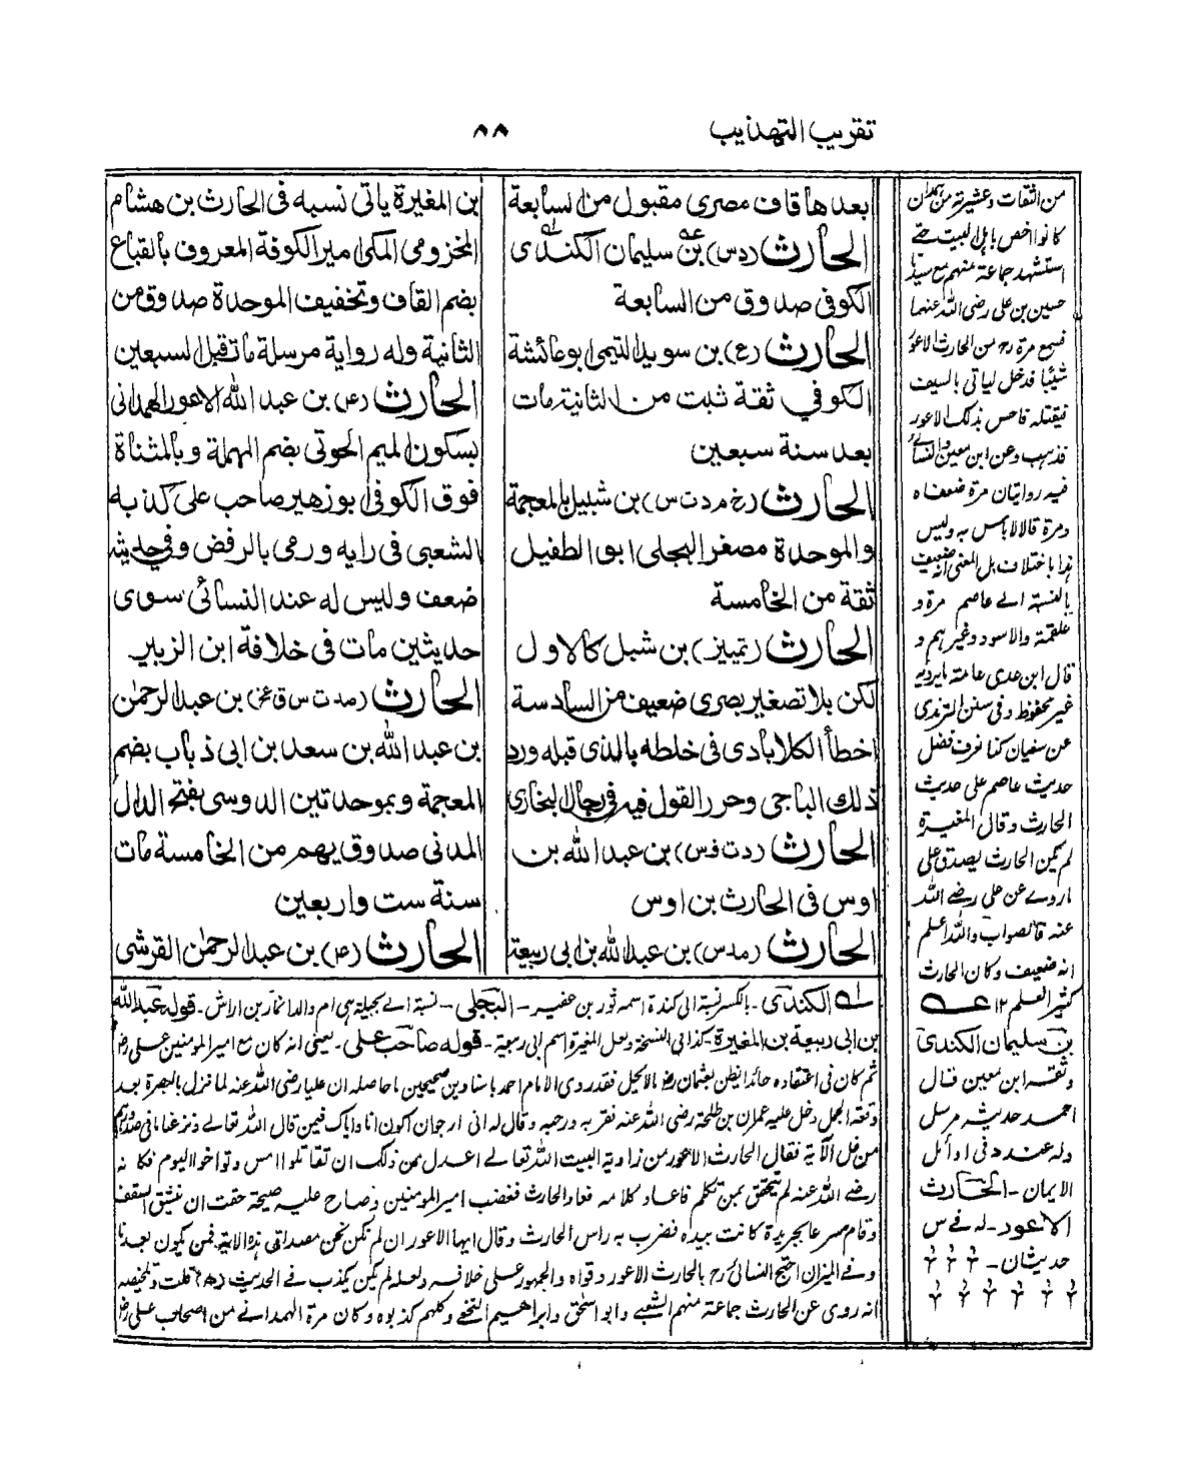 تقريب التهذيب
٨٨
بعدها قاف مصري مقبول من السابعة
الحارث (د س) بن سليمان الكندى
الكوفى صدوق من السابعة
الحارث (ع) بن سويد التيمى ابو عائشة
الكوفي ثقة ثبت من الثانية مات
بعد سنة سبعين
الحارث (خ م د ت س) بن شبيل بالمعجمة
والموحدة مصغر البجلى ابو الطفيل
ثقة من الخامسة
الحارث (تمييز) بن شبل كالاول
لكن بلا تصغير بصرى ضعيف من السادسة
اخطأ الكلاباذى فى خلطه بالذى قبله ورد
ذلك الباجى وحرر القول فيه فى رجال البخارى
الحارث (د ت س) بن عبد الله بن
اوس فى الحارث بن اوس
الحارث (مد س) بن عبد الله بن ابى ربيعة
بن المغيرة ياتى نسبه فى الحارث بن هشام
المخزومى المكى امير الكوفة المعروف بالقباع
بضم القاف وتخفيف الموحدة صدوق من
الثانية وله رواية مرسلة مات قبل السبعين
الحارث (٤) بن عبد الله الاعور الهمدانى
بسكون الميم الحوتى بضم المهملة وبالمثناة
فوق الكوفى ابو زهير صاحب على كذبه
الشعبى فى رايه ورمى بالرفض وفى حديثه
ضعف وليس له عند النسائى سوى
حديثين مات فى خلافة ابن الزبير
الحارث (مد ت س ق عخ) بن عبد الرحمٰن
بن عبد الله بن سعد بن ابى ذباب بضم
المعجمة وبموحدتين الدوسى بفتح الدال
المدنى صدوق يهم من الخامسة مات
سنة ست واربعين
الحارث (٤) بن عبد الرحمٰن القرشى
الكندى - بالكسر نسبة الى كندة اسمه ثور بن عفير - البجلى - نسبة الے بجيلة هى ام ولد انمار بن اراش - قوله عبد الله
بن ابى ربيعة بن المغيرة - كذا فى النسخة ولعل المغيرة اسم ابى ربيعة - قوله صاحب على - يعنى انه كان مع امير المؤمنين على رض
وقعة الجمل دخل عليه عمران بن طلحة رضى الله عنه فقربه ورحب به وقال له انى ارجو ان اكون انا واباك فيمن قال الله تعالے ونزعنا ما فى صدورهم
من غل الآية فقال الحارث الاعور من زاوية البيت الله تعالے اعدل من ذلك ان تقاتلوا امس وتواخوا اليوم فكانه
وقام معه عا بجريدة كانت بيده فضرب به راس الحارث وقال ايها الاعور ان لم نكن نحن مصداقى هذه الآية فمن يكون بعدنا
وفے الميزان احتج النسائى رح بالحارث الاعور وقواه والجمهور على خلافه ولعله لم يكن يكذب فے الحديث
انه روى عن الحارث جماعة منهم الشعبے وابو اسحٰق وابراهيم النخعے وكلهم كذبوه وكان مرة الهمدانے من اصحاب على رض
من الثقات وعشيرته من همدان
كانوا اخص باهل البيت حتے
استشهد جماعة منهم مع سيدنا
حسين بن على رضى الله عنهما
فسمع مرة رح من الحارث الاعور
شيئا فدخل لياتى بالسيف
فيقتله فاحس بذلك الاعور
فذهب وعن ابن معين والنسائے
فيه روايتان مرة ضعفاه
ومرة قالا لا باس به وليس
هذا باختلاف بل المعنى انه ضعيف
بالنسبة الے عاصم مرة و
علقمة والاسود وغيرهم و
قال ابن عدى عامة ما يرويه
غير محفوظ وفى سنن الترمذى
عن سفيان كنا نعرف فضل
حديث عاصم على حديث
الحارث وقال المغيرة
لم يكن الحارث يصدق على
ما روے عن على رضے الله
عنه فالصواب والله اعلم
انه ضعيف وكان الحارث
كثير العلم ١٢
بن سليمان الكندى
وثقه ابن معين قال
احمد حديثه مرسل
وله عند د فى اوائل
الايمان - الحارث
الاعور - له فے س
حديثان -